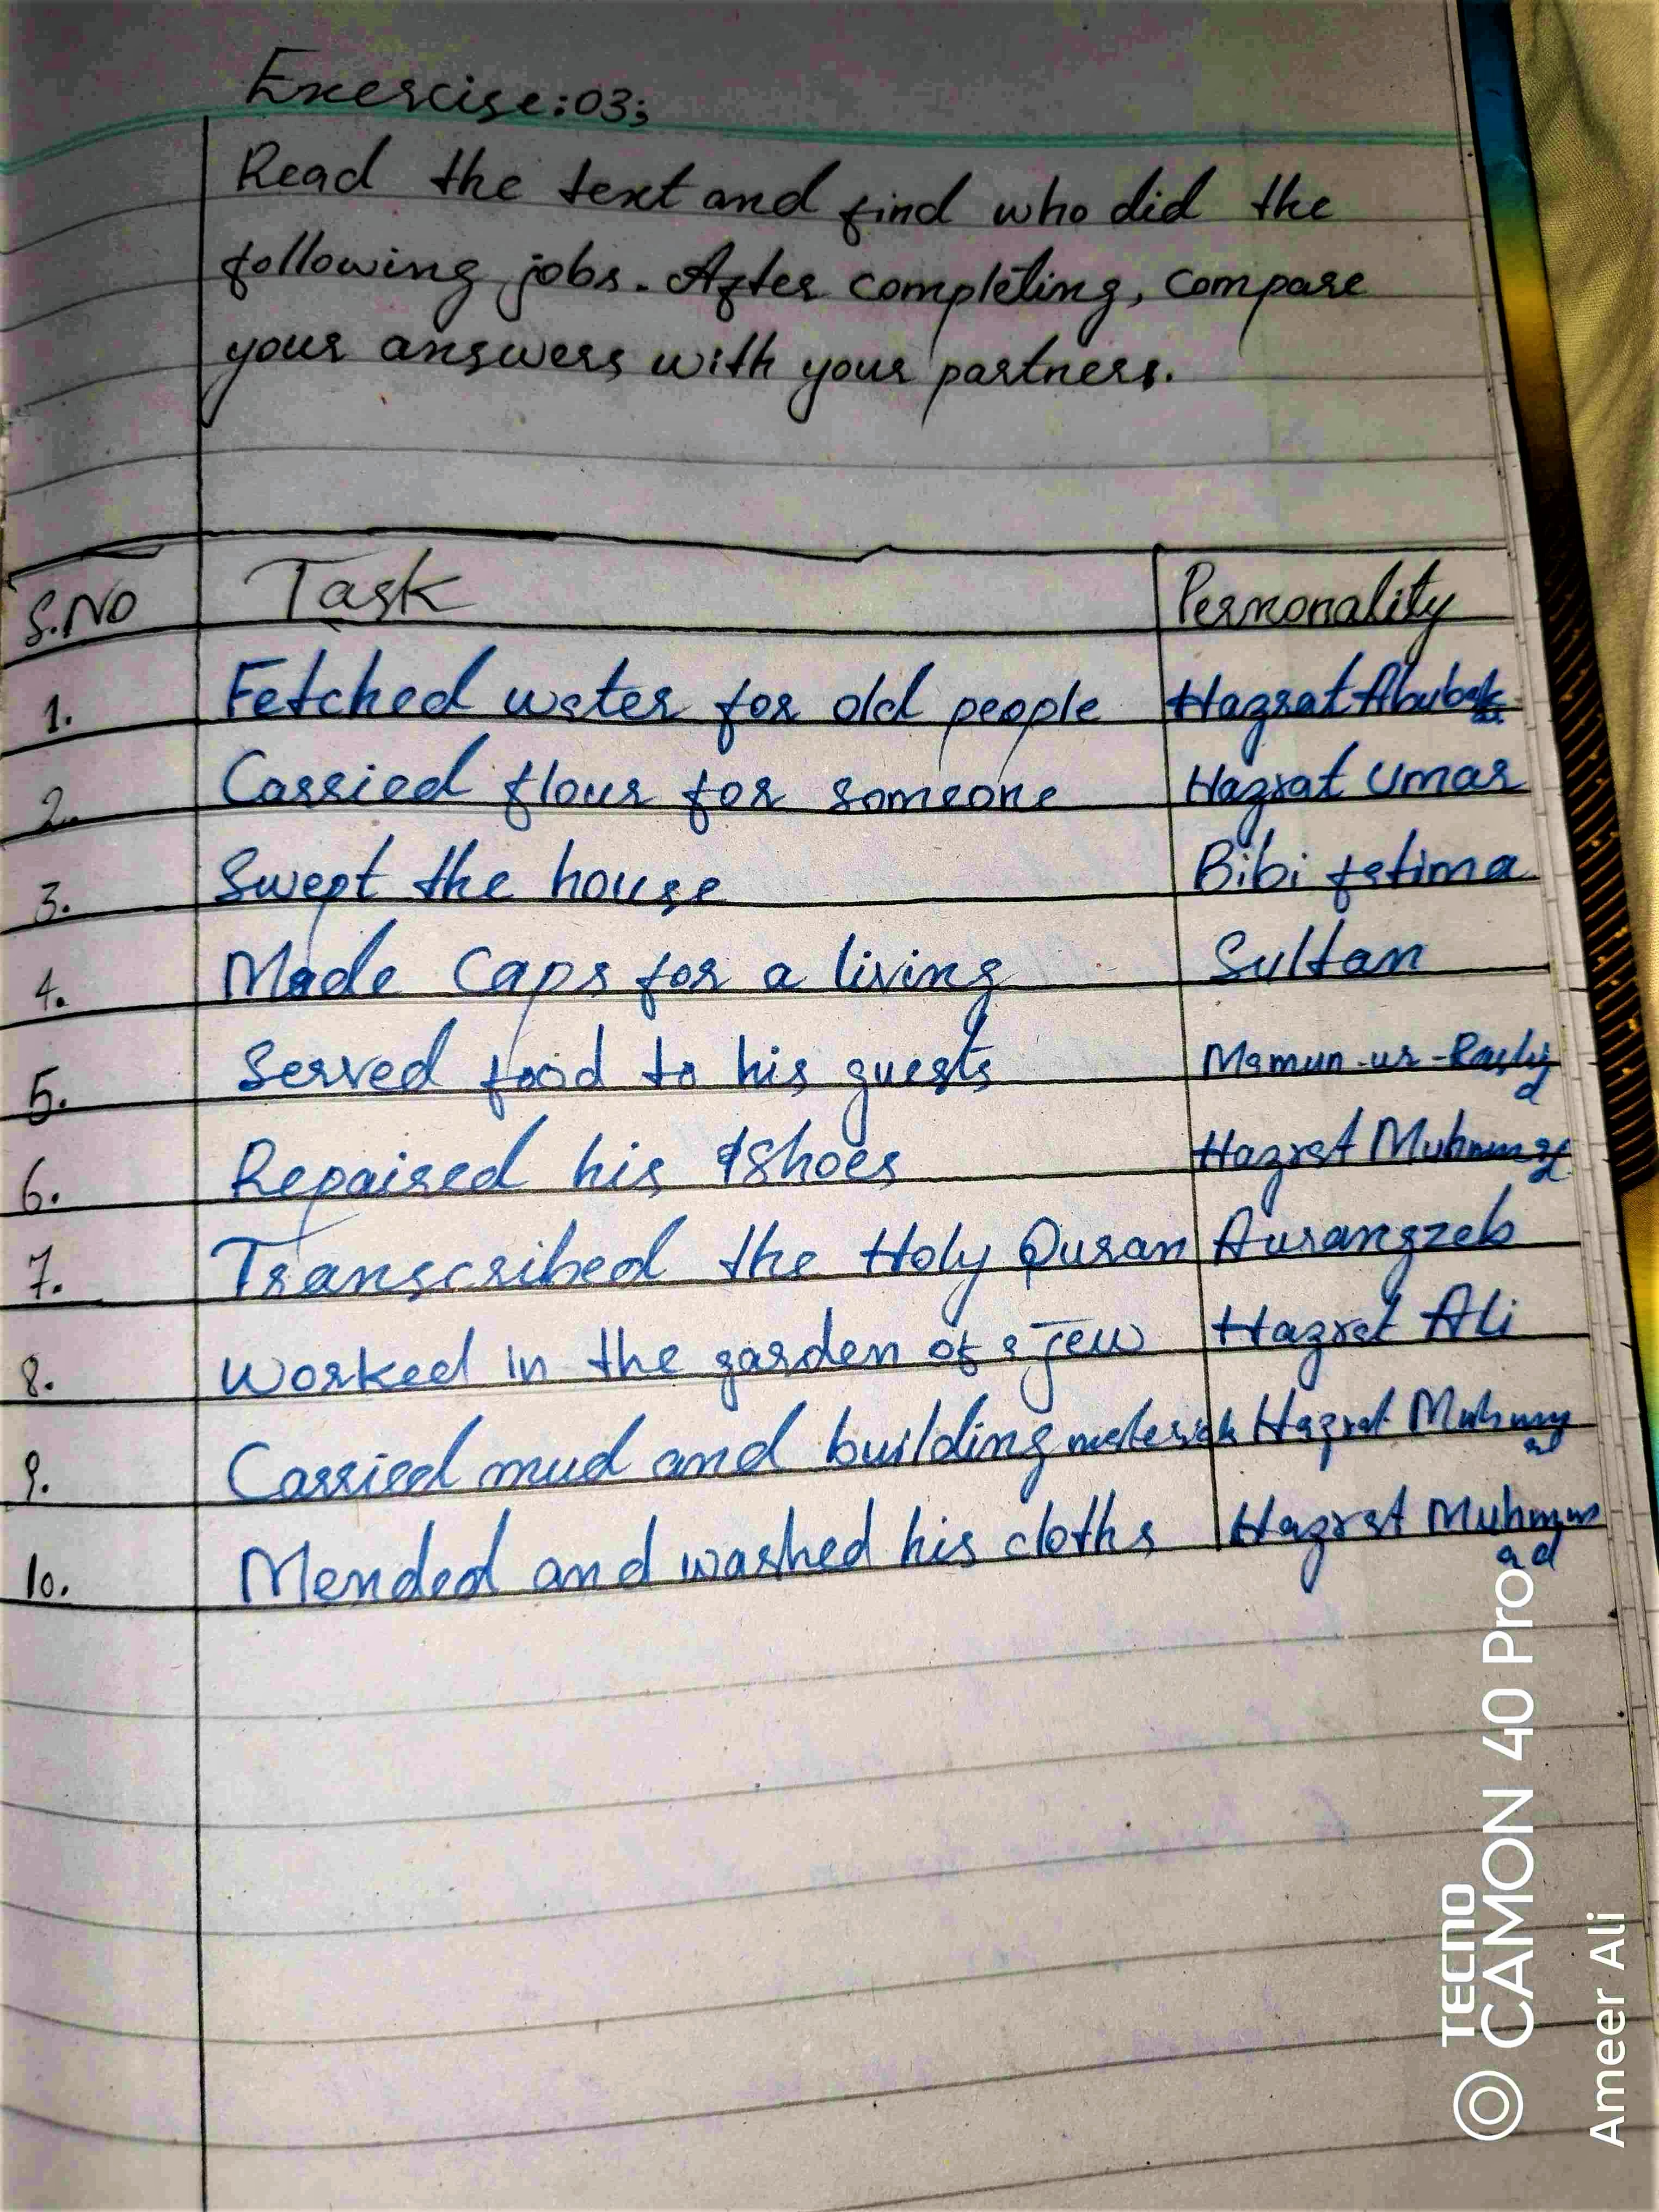 Exercise:03;
Read the text and find who did the
following jobs. After completing, compare
your answers with your partners.
S.NO Task Personality
1. Fetched water for old people Hazrat Abubak
2. Carried flour for someone Hazrat Umar
3. Swept the house Bibi fatima
4. Made Caps for a living Sultan
5. Served food to his guests Mamun-ur-Rashid
6. Repaired his Shoes Hazrat
7. Transcribed the Holy Quran Aurangzeb
8. Worked in the garden of a Jew Hazrat Ali
9. Carried mud and building materials Hazrat
10. Mended and washed his cloths Hazrat
TECNO
CAMON 40 Pro
Ameer Ali